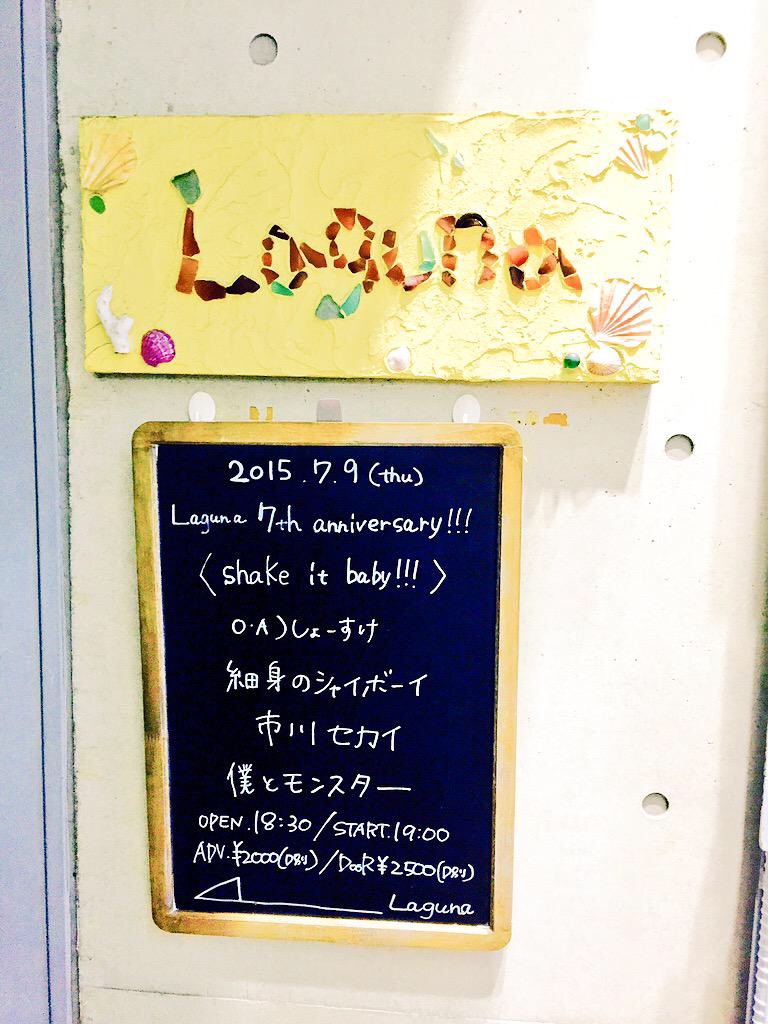 Laguna
2015.7.9(thu)
Laguna 7th anniversary!!!
〈shake it baby!!!〉
O.A)しょーすけ
細身のシャイボーイ
市川セカイ
僕とモンスター
OPEN.18:30/START.19:00
ADV.¥2000(D別)/DooR¥2500(D別)
Laguna